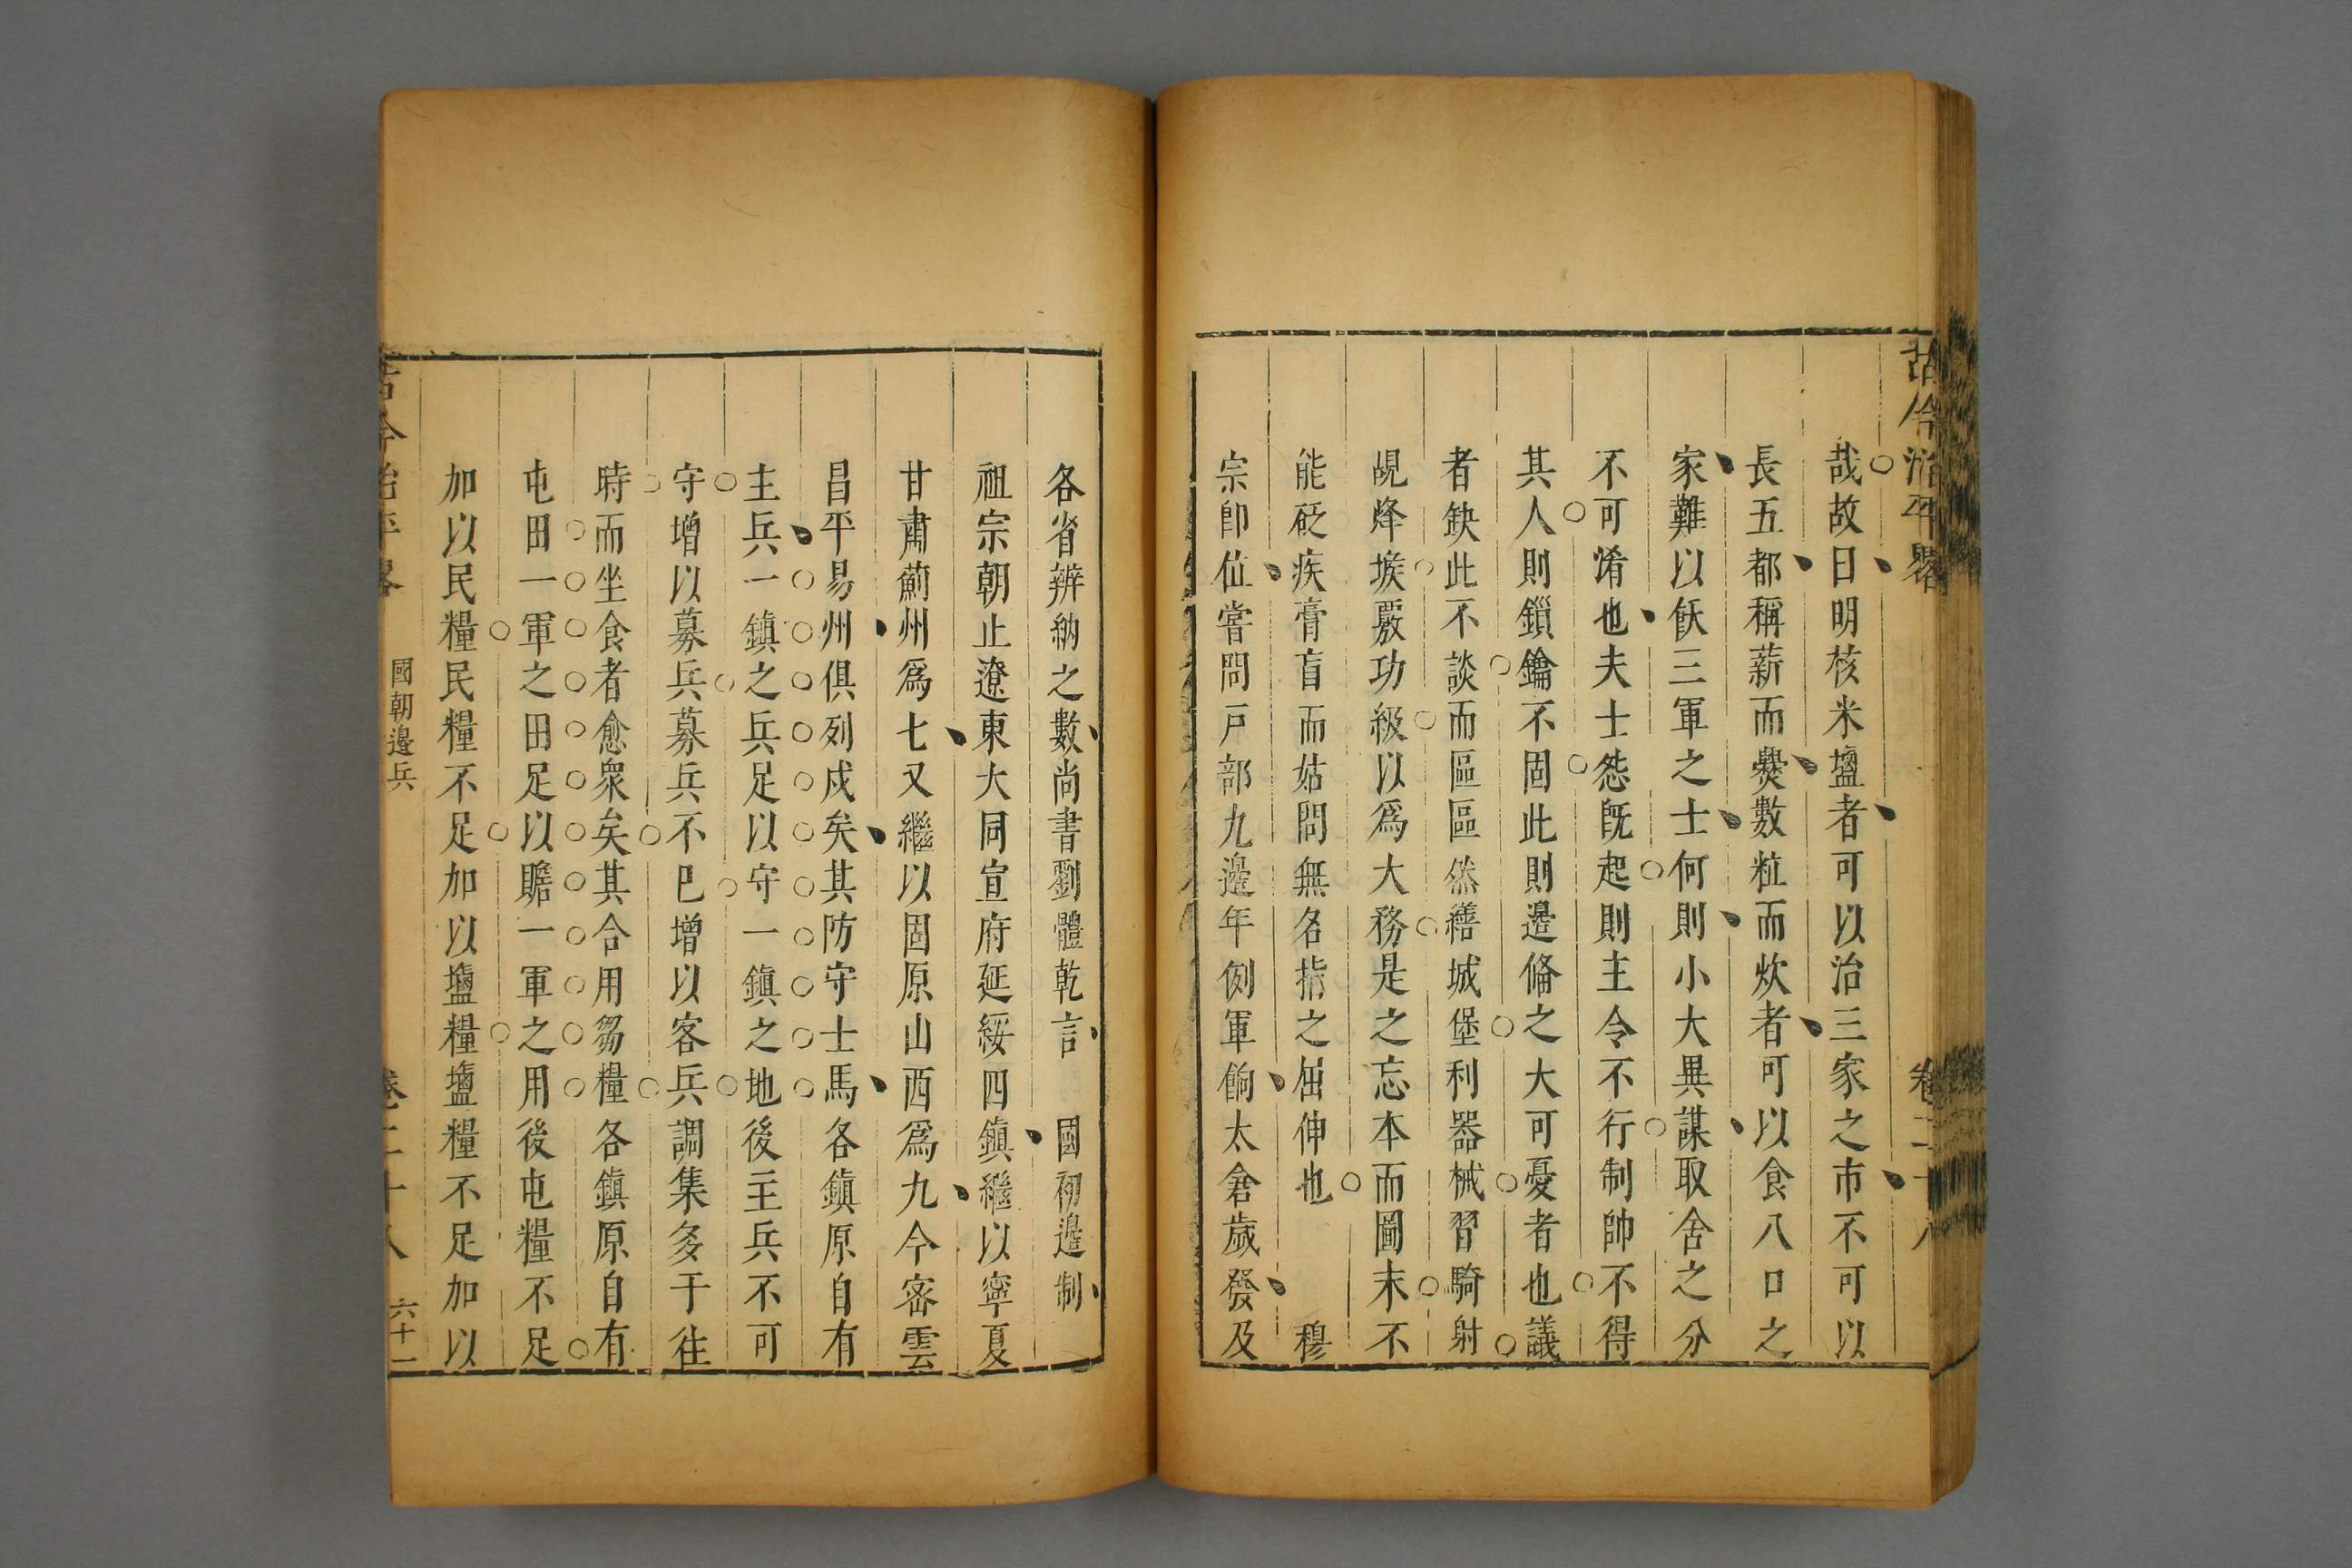 古今治平畧
卷二十八
哉故曰明核米鹽者可以治三家之市不可以
長五都稱薪而㸑數粒而炊者可以食八口之
家難以飫三軍之士何則小大異謀取舍之分
不可淆也夫士怨旣起則主令不行制帥不得
其人則鎖鑰不固此則邊備之大可憂者也議
者缺此不談而區區然繕城堡利器械習騎射
覘烽堠覈功級以爲大務是之忘本而圖末不
能砭疾膏盲而姑問無名指之屈伸也 穆
宗卽位嘗問戸部九邊年例軍餉太倉歲發及
各省辦納之數尚書劉體乾言 國初邊制
祖宗朝止遼東大同宣府延綏四鎭繼以寧夏
甘肅薊州爲七又繼以固原山西爲九今密雲
昌平易州俱列戍矣其防守士馬各鎭原自有
主兵一鎭之兵足以守一鎭之地後主兵不可
守增以募兵募兵不巳增以客兵調集多于往
時而坐食者愈衆矣其合用芻糧各鎭原自有
屯田一軍之田足以贍一軍之用後屯糧不足
加以民糧民糧不足加以鹽糧鹽糧不足加以
古今治平畧
國朝邊兵
卷二十八
六十一